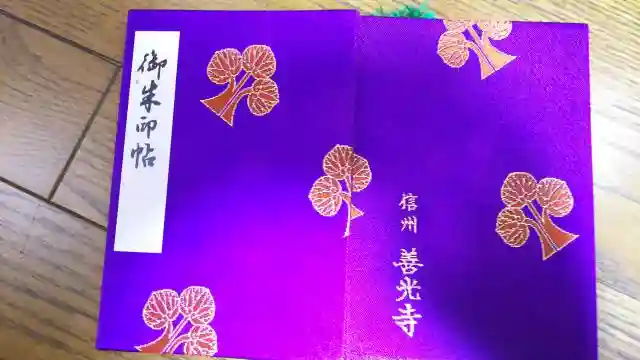 御朱印帖
信州 善光寺